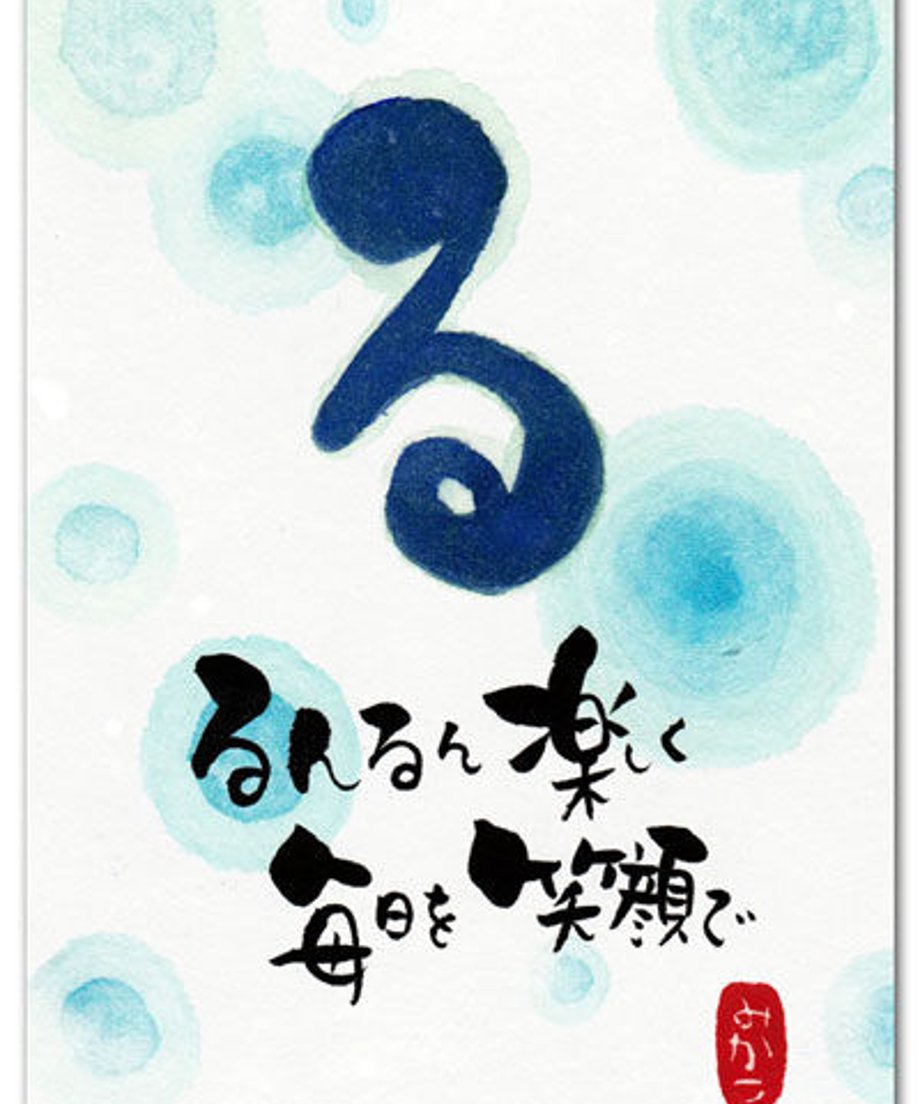 る
るんるん楽しく
毎日を笑顔で